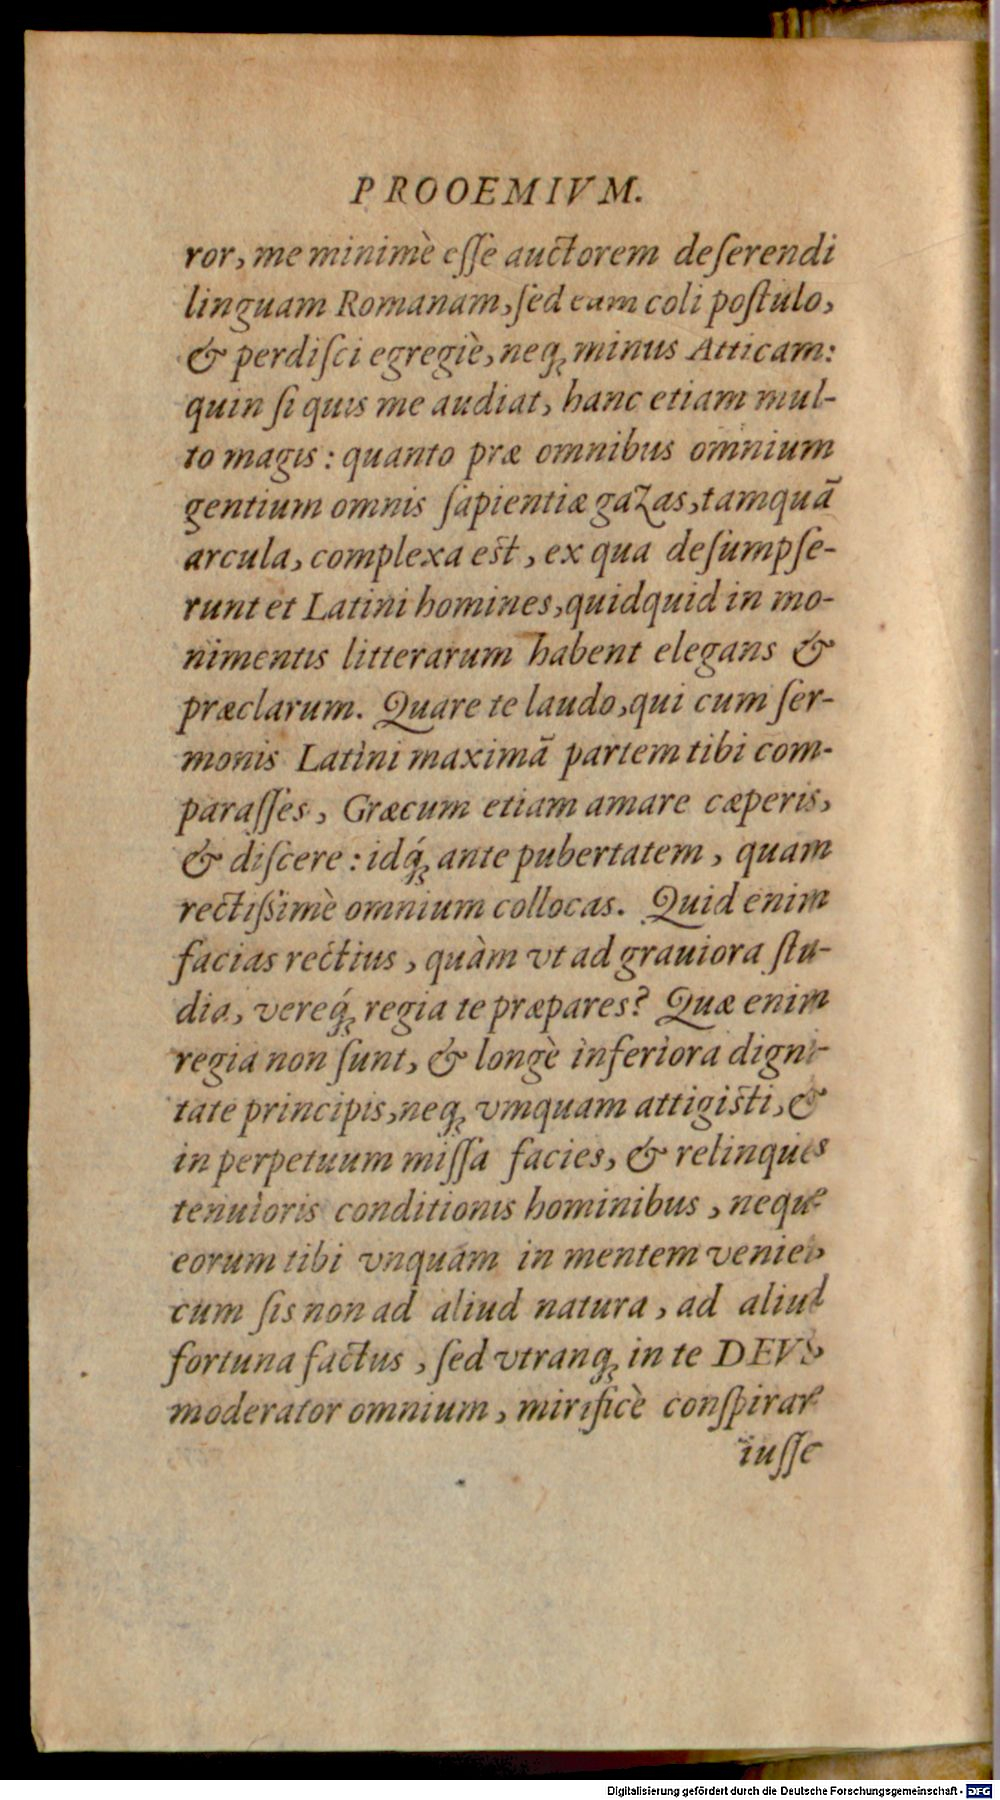 PROOEMIVM.
ror, me minimè eſſe auctorem deſerendi
linguam Romanam, ſed eam coli poſtulo,
& perdiſci egregiè, neq; minus Atticam:
quin ſi quis me audiat, hanc etiam mul-
to magis: quanto præ omnibus omnium
gentium omnis ſapientiæ gazas, tamquā
arcula, complexa est, ex qua deſumpſe-
runt et Latini homines, quidquid in mo-
nimentis litterarum habent elegans &
præclarum. Quare te laudo, qui cum ſer-
monis Latini maximā partem tibi com-
paraſſes, Græcum etiam amare cæperis,
& diſcere: idq́; ante pubertatem, quam
rectiſsimè omnium collocas. Quid enim
facias rectius, quàm vt ad grauiora ſtu-
dia, vereq́; regia te præpares? Quæ enim
regia non ſunt, & longè inferiora digni-
tate principis, neq; vmquam attigisti, &
in perpetuum miſſa facies, & relinques
tenuioris conditionis hominibus, neque
eorum tibi vnquam in mentem veniet,
cum ſis non ad aliud natura, ad aliud
fortuna factus, ſed vtranq; in te DEVS,
moderator omnium, mirificè conſpirare
iuſſe
Digitalisierung gefördert durch die Deutsche Forschungsgemeinschaft - DFG